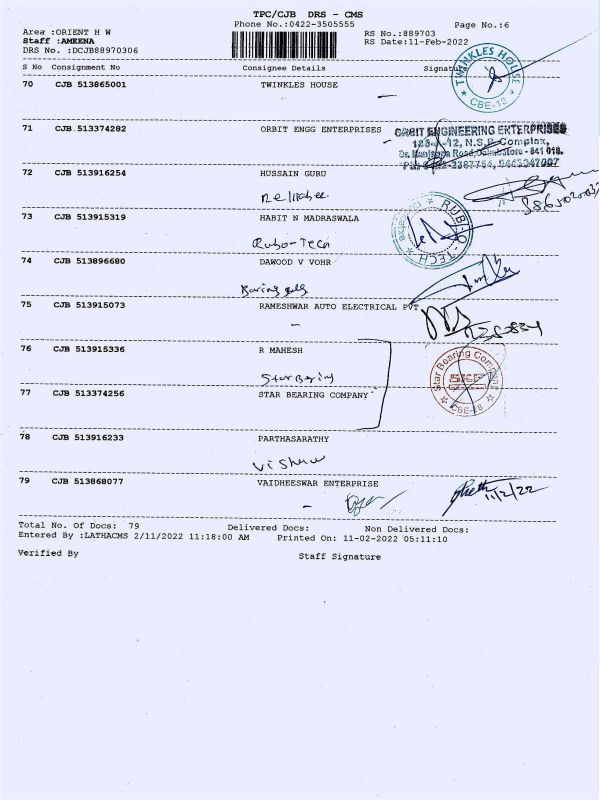 TPC/CJB DRS - CMS
Phone No.:0422-3505555
Page No.:6
Area :ORIENT H W
Staff :AMEENA
DRS No. :DCJB88970306
RS No.:889703
RS Date:11-Feb-2022
S No Consignment No Consignee Details Signature
70 CJB 513865001 TWINKLES HOUSE
TWINKLES HOUSE
CBE-13
71 CJB 513374282 ORBIT ENGG ENTERPRISES
ORBIT ENGINEERING ENTERPRISES
N.S.P. Complex,
Dr. Nanjappa Road, Coimbatore - 641 018.
72 CJB 513916254 HUSSAIN GURU
73 CJB 513915319 HABIT N MADRASWALA
Rubo-Tech
RUBO-TECH
74 CJB 513896680 DAWOOD V VOHR
75 CJB 513915073 RAMESHWAR AUTO ELECTRICAL PVT
76 CJB 513915336 R MAHESH
Star Bearing
Star Bearing Company
SKF
CBE-18
77 CJB 513374256 STAR BEARING COMPANY
78 CJB 513916233 PARTHASARATHY
79 CJB 513868077 VAIDHEESWAR ENTERPRISE
11/2/22
Total No. Of Docs: 79 Delivered Docs: Non Delivered Docs:
Entered By :LATHACMS 2/11/2022 11:18:00 AM Printed On: 11-02-2022 05:11:10
Verified By Staff Signature